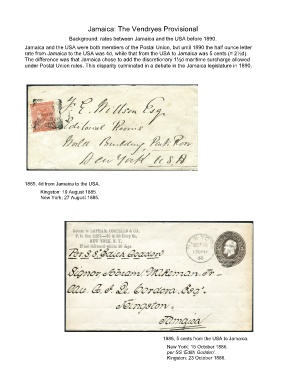 Jamaica: The Vendryes Provisional
Background: rates between Jamaica and the USA before 1890.
Jamaica and the USA were both members of the Postal Union, but until 1890 the half ounce letter
rate from Jamaica to the USA was 4d, while that from the USA to Jamaica was 5 cents (= 2½d).
The difference was that Jamaica chose to add the discretionary 1½d maritime surcharge allowed
under Postal Union rules. This disparity culminated in a debate in the Jamaica legislature in 1890.
Willson Esq.
Editorial Rooms
World Building, Park Row
New York U.S.A
1885, 4d from Jamaica to the USA.
Kingston: 19 August 1885.
New York: 27 August 1885.
NEW YORK, N.Y.
Per S.S. "Edith Godden"
Signor
Kingston,
Jamaica
1886, 5 cents from the USA to Jamaica.
New York: 15 October 1886.
per SS 'Edith Godden'.
Kingston: 23 October 1886.